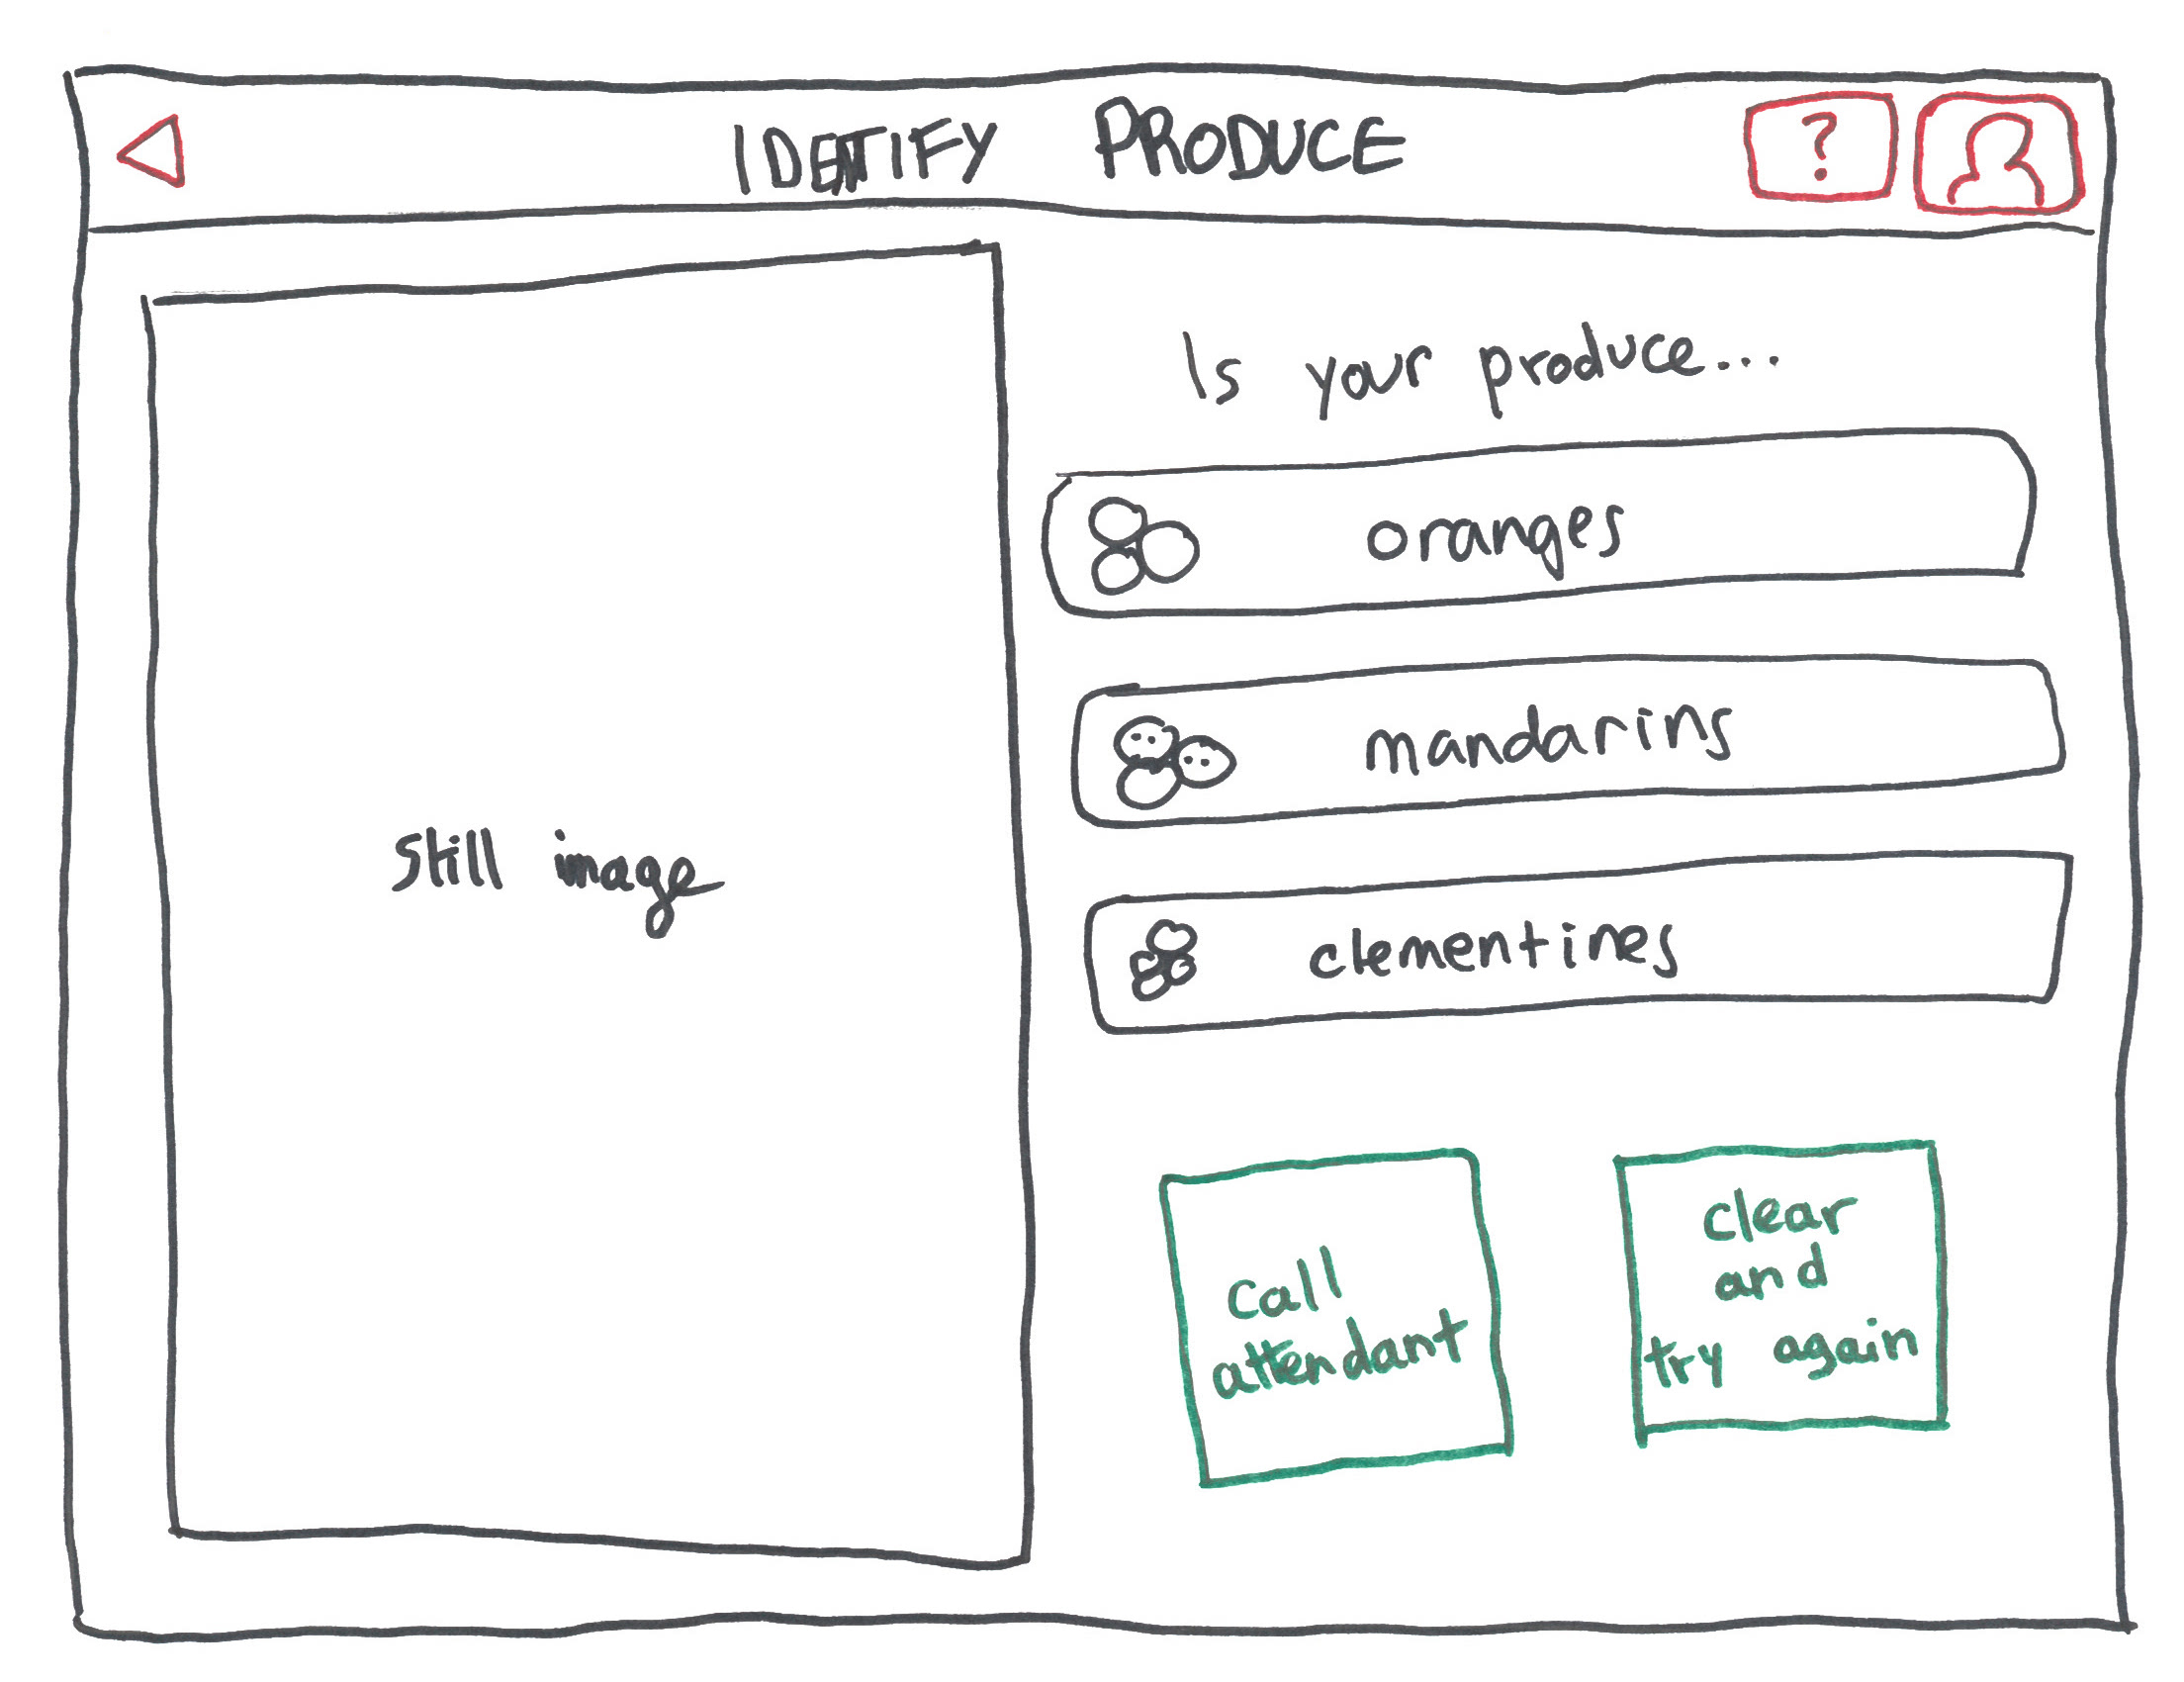 IDENTIFY PRODUCE
?
still image
Is your produce...
oranges
mandarins
clementines
call
attendant
clear
and
try again